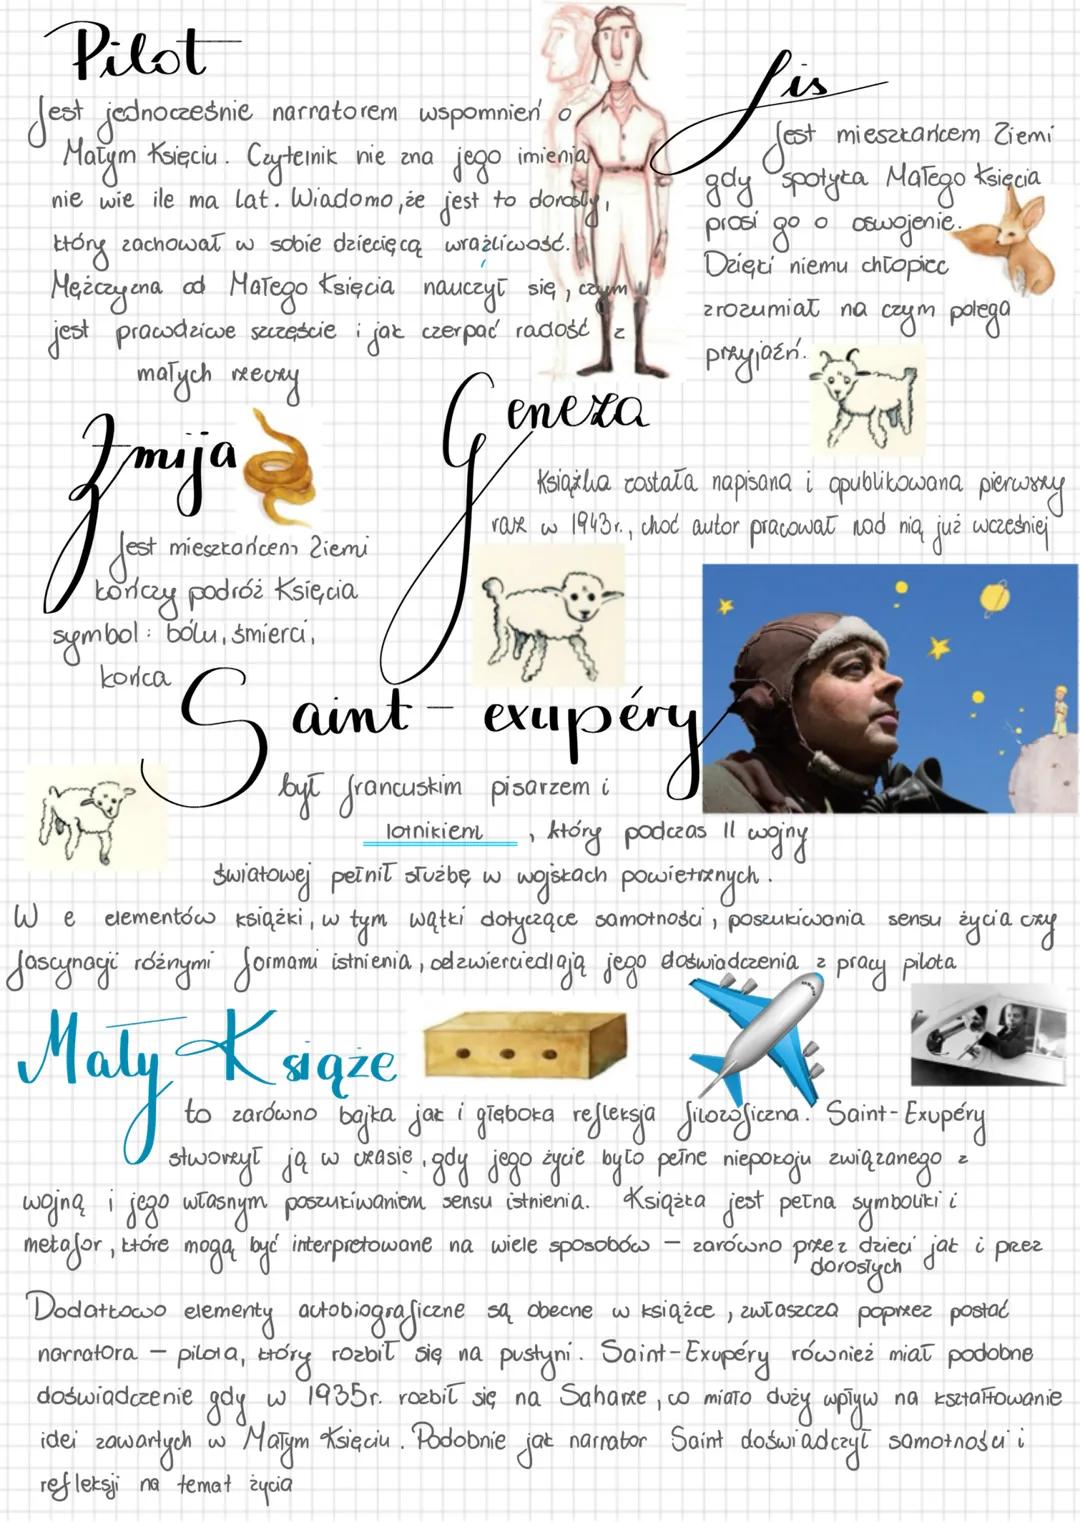 Pilot
Jest jednocześnie narratorem wspomnień o
Małym Księciu. Czytelnik nie zna jego imienia
nie wie ile ma lat. Wiadomo, że jest to dorosły,
który zachował w sobie dziecięcą wrażliwość.
Mężczyzna od Małego Księcia nauczył się, czym
jest prawdziwe szczęście i jak czerpać radość z
małych rzeczy
Lis
Jest mieszkańcem Ziemi
gdy spotyka Małego Księcia
prosi go o oswojenie.
Dzięki niemu chłopiec
zrozumiał na czym polega
przyjaźń.
Żmija
Jest mieszkańcem Ziemi
kończy podróż Księcia
symbol: bólu, śmierci,
końca
Geneza
Książka została napisana i opublikowana pierwszy
raz w 1943r., choć autor pracował nad nią już wcześniej
Saint-exupéry
był francuskim pisarzem i
lotnikiem, który podczas II wojny
światowej pełnił służbę w wojskach powietrznych.
W e elementów książki, w tym wątki dotyczące samotności, poszukiwania sensu życia czy
fascynacji różnymi formami istnienia, odzwierciedlają jego doświadczenia z pracy pilota
Mały Książe
to zarówno bajka jak i głęboka refleksja filozoficzna. Saint-Exupéry
stworzył ją w czasie, gdy jego życie było pełne niepokoju związanego z
wojną i jego własnym poszukiwaniem sensu istnienia. Książka jest pełna symboliki i
metafor, które mogą być interpretowane na wiele sposobów – zarówno przez dzieci jak i przez
dorosłych
Dodatkowo elementy autobiograficzne są obecne w książce, zwłaszcza poprzez postać
narratora – pilota, który rozbił się na pustyni. Saint-Exupéry również miał podobne
doświadczenie gdy w 1935r. rozbił się na Saharze, co miało duży wpływ na kształtowanie
idei zawartych w Małym Księciu. Podobnie jak narrator Saint doświadczył samotności i
refleksji na temat życia